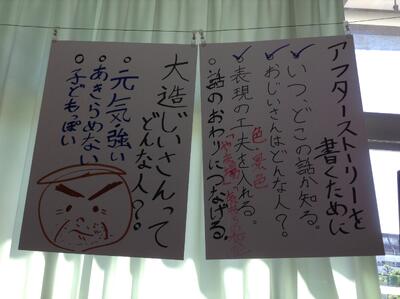 アフターストーリーを
書くために
いつ、どこの話か知る。
おじいさんはどんな人？。
表現の工夫を入れる。
色、景色
話のおわりにつなげる。
大造じいさんって
どんな人？。
元気、強い
あきらめない
子どもっぽい